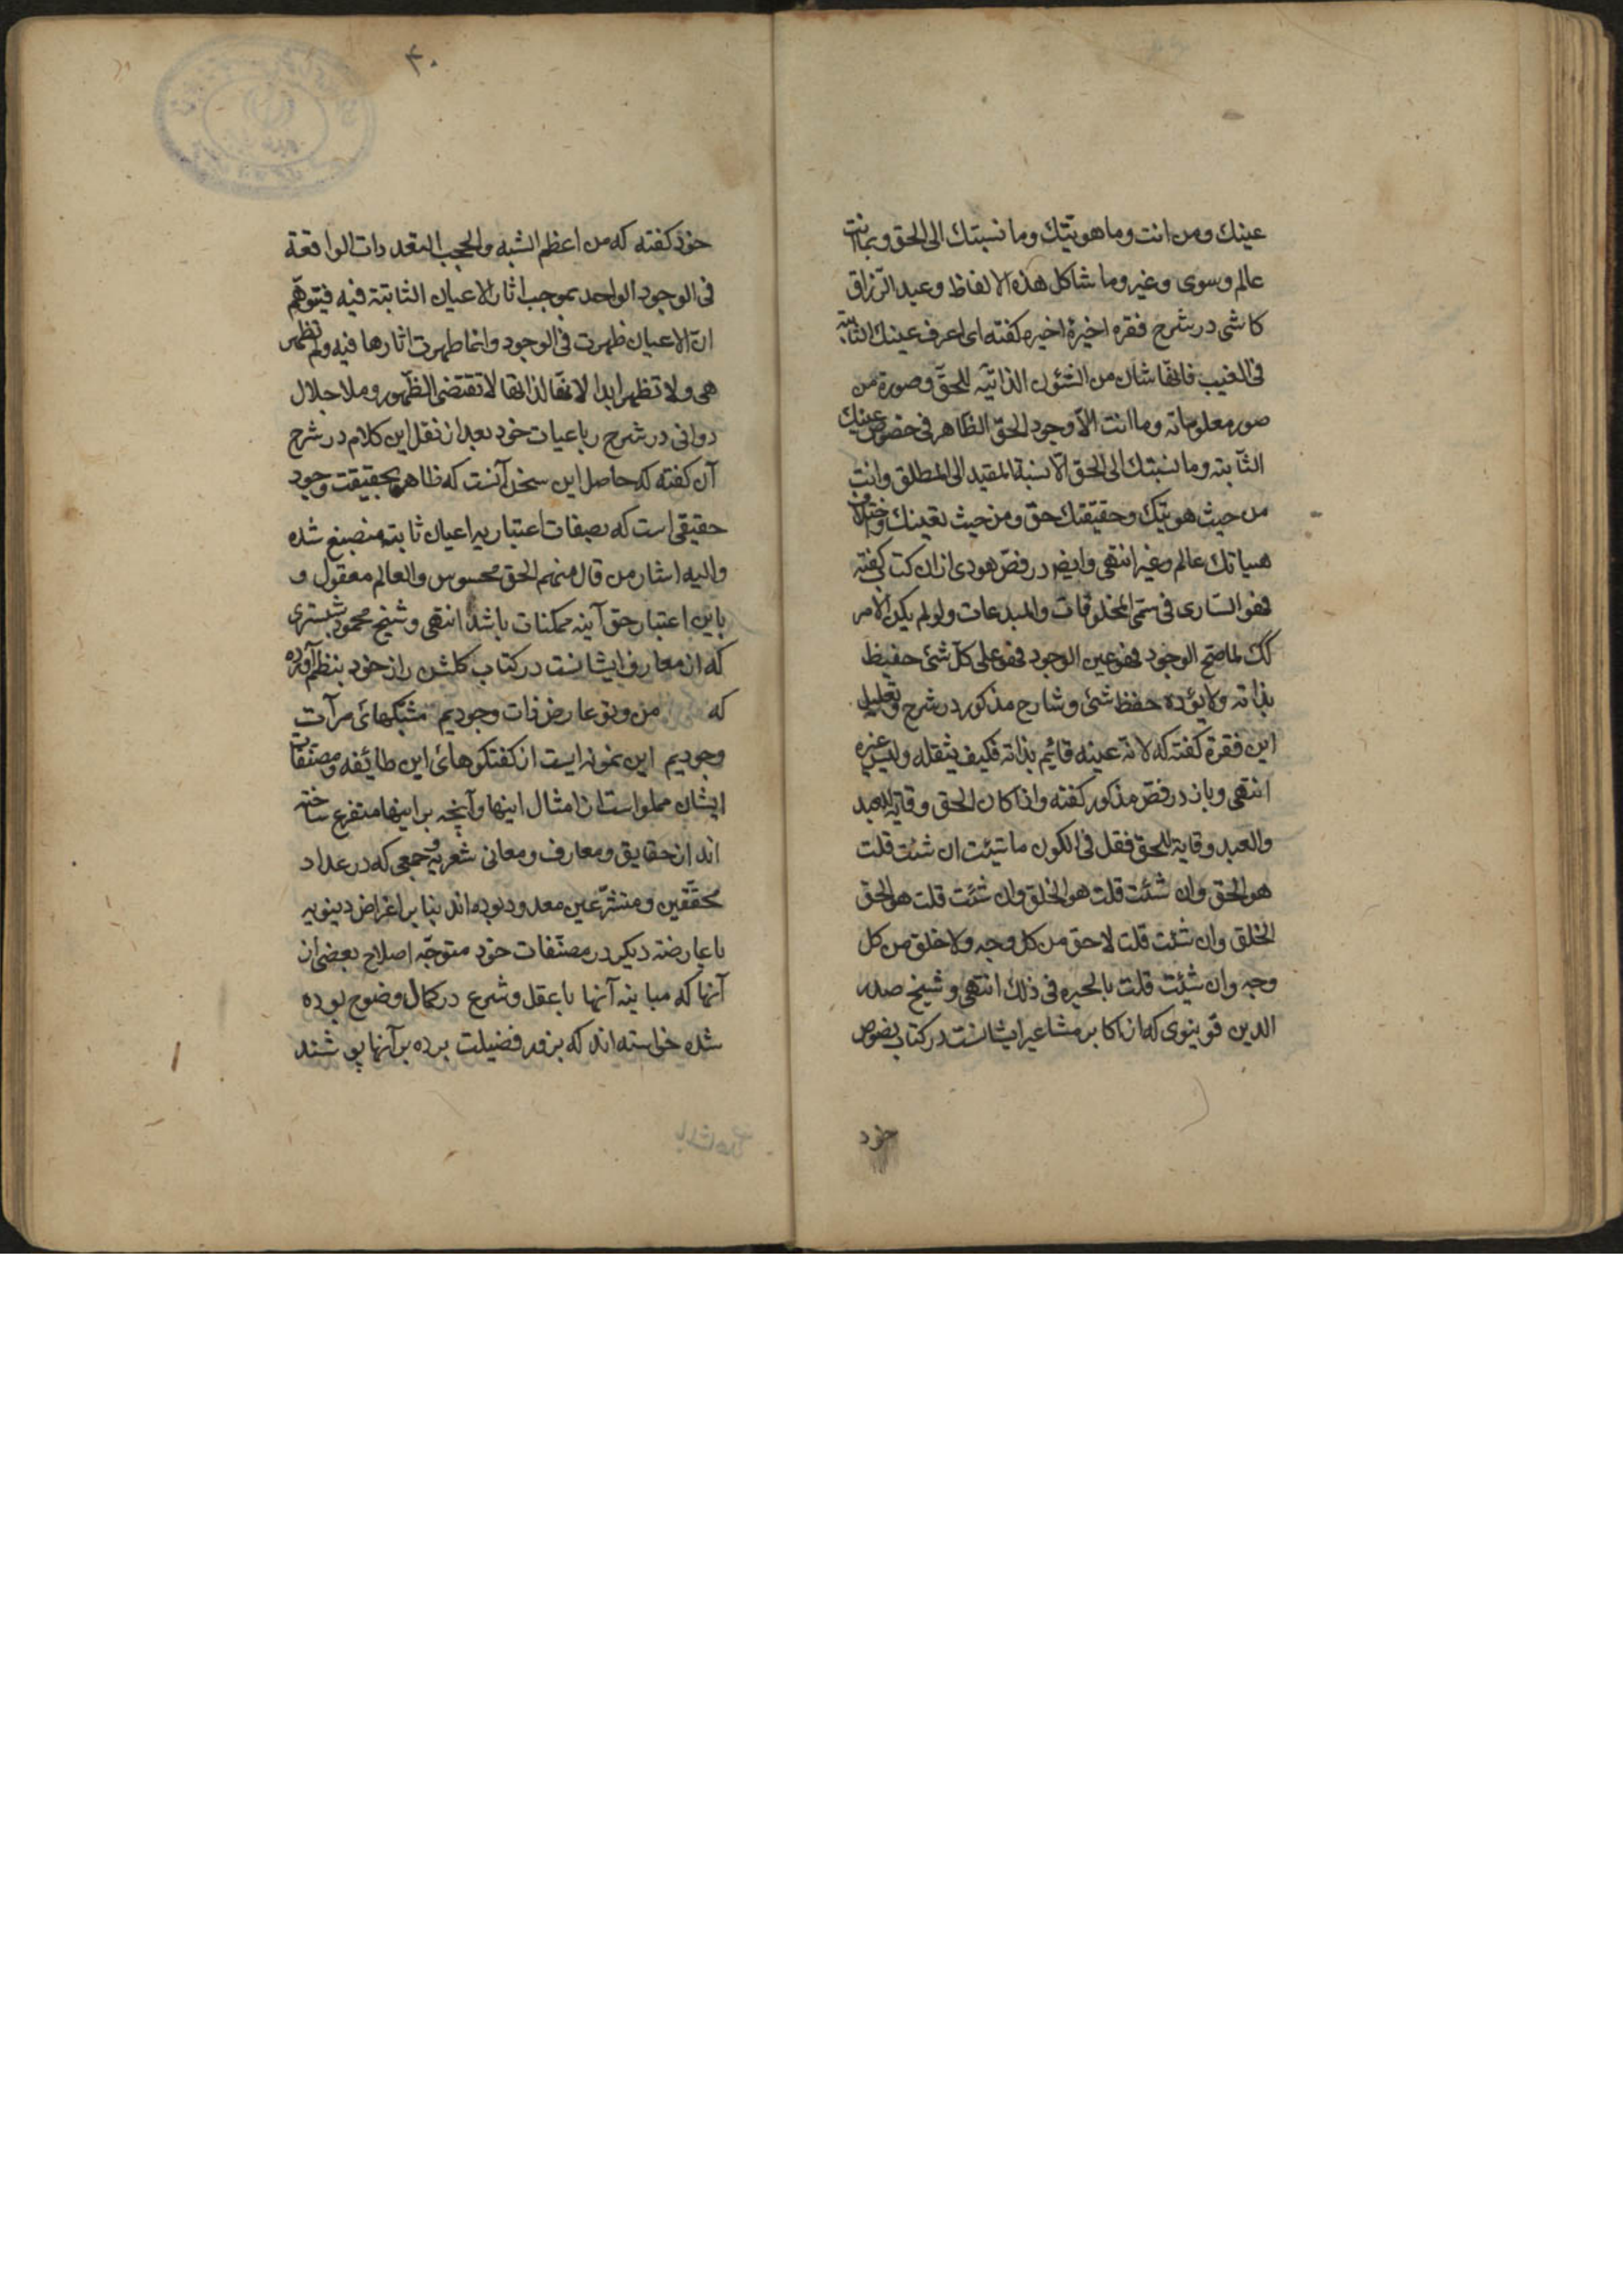 عينك ومن انت وما هويتك وما نسبتك الى الحق وبما انت
عالم وسوى وغير وما شاكل هذه الالفاظ وعبد الرّزاق
كاشى در شرح فقره اخيرۀ اخيره كفته اى اعرف عينك الثابتة
فى الغيب فانّها شان من الشئون الذاتيّه للحقّ وصورة من
صور معلوماته وما انت الّا وجود الحقّ الظاهر فى خصوص عينك
الثّابته وما نسبتك الى الحق الّا نسبة المقيد الى المطلق وانت
من حيث هويتك وحقيقتك حق ومن حيث تعينك واختلاف
هيياتك عالم وغير انتهى وايضا در فصّ هودى از ان كتاب كفته
فهو السّارى فى مسمّى المخلوقات والمبدعات ولو لم يكن الامر
كك لما صحّ الوجود فهو عين الوجود فهو على كلّ شئ حفيظ
بذاته ولا يؤده حفظ شئ وشارح مذكور در شرح وتعليل
اين فقرة كفته كه لانّه عينه قائم بذاته فكيف يثقله وليس غيره
انتهى وباز در فصّ مذكور كفته واذا كان الحق وقاية للعبد
والعبد وقاية للحقّ فقل فى الكون ما شئت ان شئت قلت
هو الحق وان شئت قلت هو الخلق وان شئت قلت هو الحق
الخلق وان شئت قلت لا حق من كل وجه ولا خلق من كل
وجه وان شئت قلت بالحيره فى ذلك انتهى وشيخ صدر
الدين قوينوى كه از اكابر مشاعير ايشانست در كتاب نصوص
خود
۴۰
خود كفته كه من اعظم الشبه والحجب التعددات الواقعة
فى الوجود الواحد بموجب اثار الاعيان الثابتة فيه فيتوهّم
انّ الاعيان ظهرت فى الوجود وانما ظهرت اثارها فيه ولم تظهر
هى ولا تظهر ابدا لانّها لذاتها لا تقتضى الظّهور وملا جلال
دوانى در شرح رباعيات خود بعد از نقل اين كلام در شرح
آن كفته كه حاصل اين سخن آنست كه ظاهر بحقيقت وجود
حقيقى است كه بصفات اعتباريه اعيان ثابته منصبغ شده
واليه اشار من قال منهم الحق محسوس والعالم معقول و
باين اعتبار حق آينه ممكنات باشد انتهى وشيخ محمود شبسترى
كه از معارف ايشانست در كتاب كلشن راز خود بنظم آورده
كه من وتو عارض ذات وجوديم مشبكهائ مرآت
وجوديم اين نمونه ايست از كفتكوهائ اين طائفه ومصنّفات
ايشان مملو است از امثال اينها وآنچه بر اينها متفرع ساخته
اند از حقايق ومعارف ومعانى شعريه وجمعى كه در عداد
محقّقين ومتشرّعين معدود بوده اند بنا بر اغراض دينويه
يا عارضه ديكر در مصنّفات خود متوجّه اصلاح بعضى از
آنها كه مباينه آنها با عقل وشرع در كمال وضوح بوده
شده خواسته اند كه بزور فضيلت پرده بر آنها پوشند